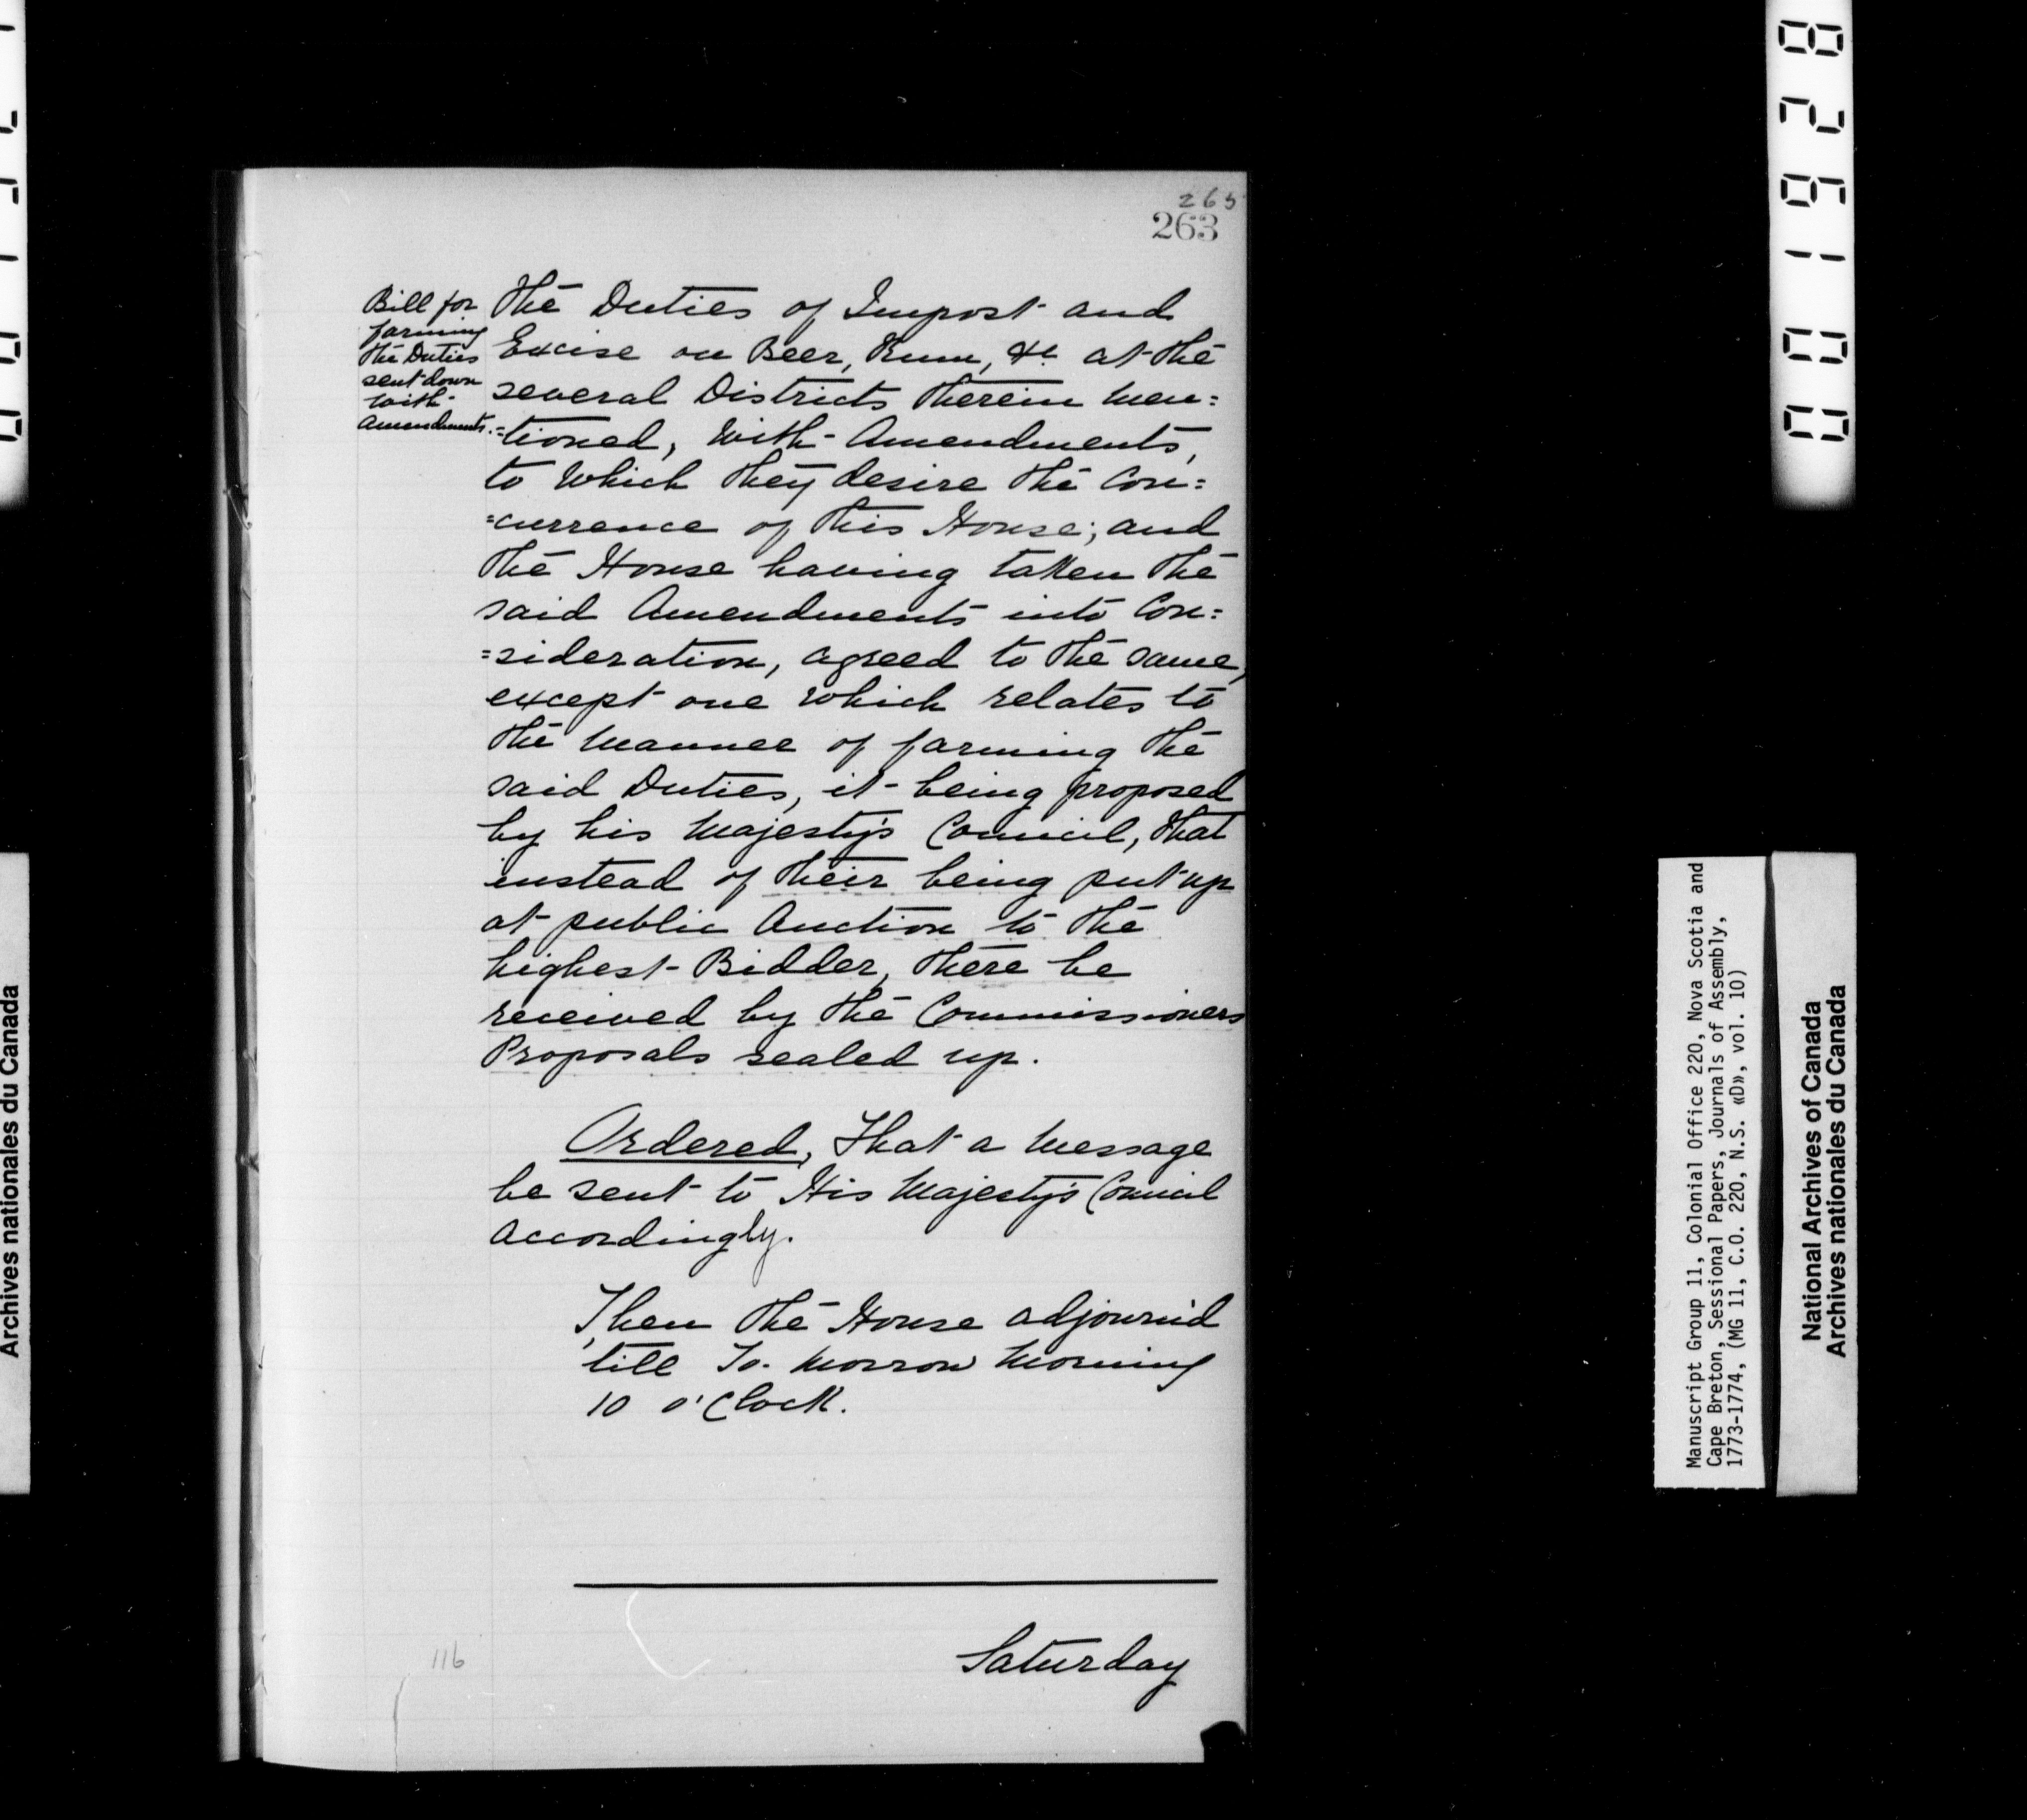 265
263
Bill for
farming
the Duties
sent down
with
amendments.
the Duties of Impost and
Excise on Beer, Rum, &c. at the
several Districts therein men=
=tioned, with Amendments,
to which they desire the Con=
=currence of this House; and
the House having taken the
said Amendments into Con=
=sideration, agreed to the same,
except one which relates to
the manner of farming the
said Duties, it being proposed
by his Majesty's Council, that
instead of their being put up
at public Auction to the
highest Bidder, there be
received by the Commissioners
Proposals sealed up.
Ordered, That a Message
be sent to His Majesty's Council
accordingly.
Then the House adjourn'd
till To-morrow Morning
10 o'Clock.
Saturday
116
001928
Manuscript Group 11, Colonial Office 220, Nova Scotia and
Cape Breton, Sessional Papers, Journals of Assembly,
1773-1774, (MG 11, C.O. 220, N.S. «D», vol. 10)
National Archives of Canada
Archives nationales du Canada
Archives nationales du Canada